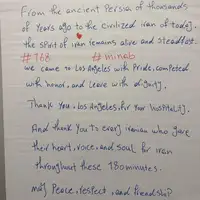 From the ancient Persia of thousands
of years ago to the civilized iran of today,
the spirit of iran remains alive and steadfast.
#168 #minab
we came to Los Angeles with Pride, competed
with honor, and leave with dignity.
Thank you, Los Angeles, for your hospitality.
And thank you to every iranian who gave
their heart, voice, and soul for iran
throughout these 180 minutes.
may Peace, respect, and friendship